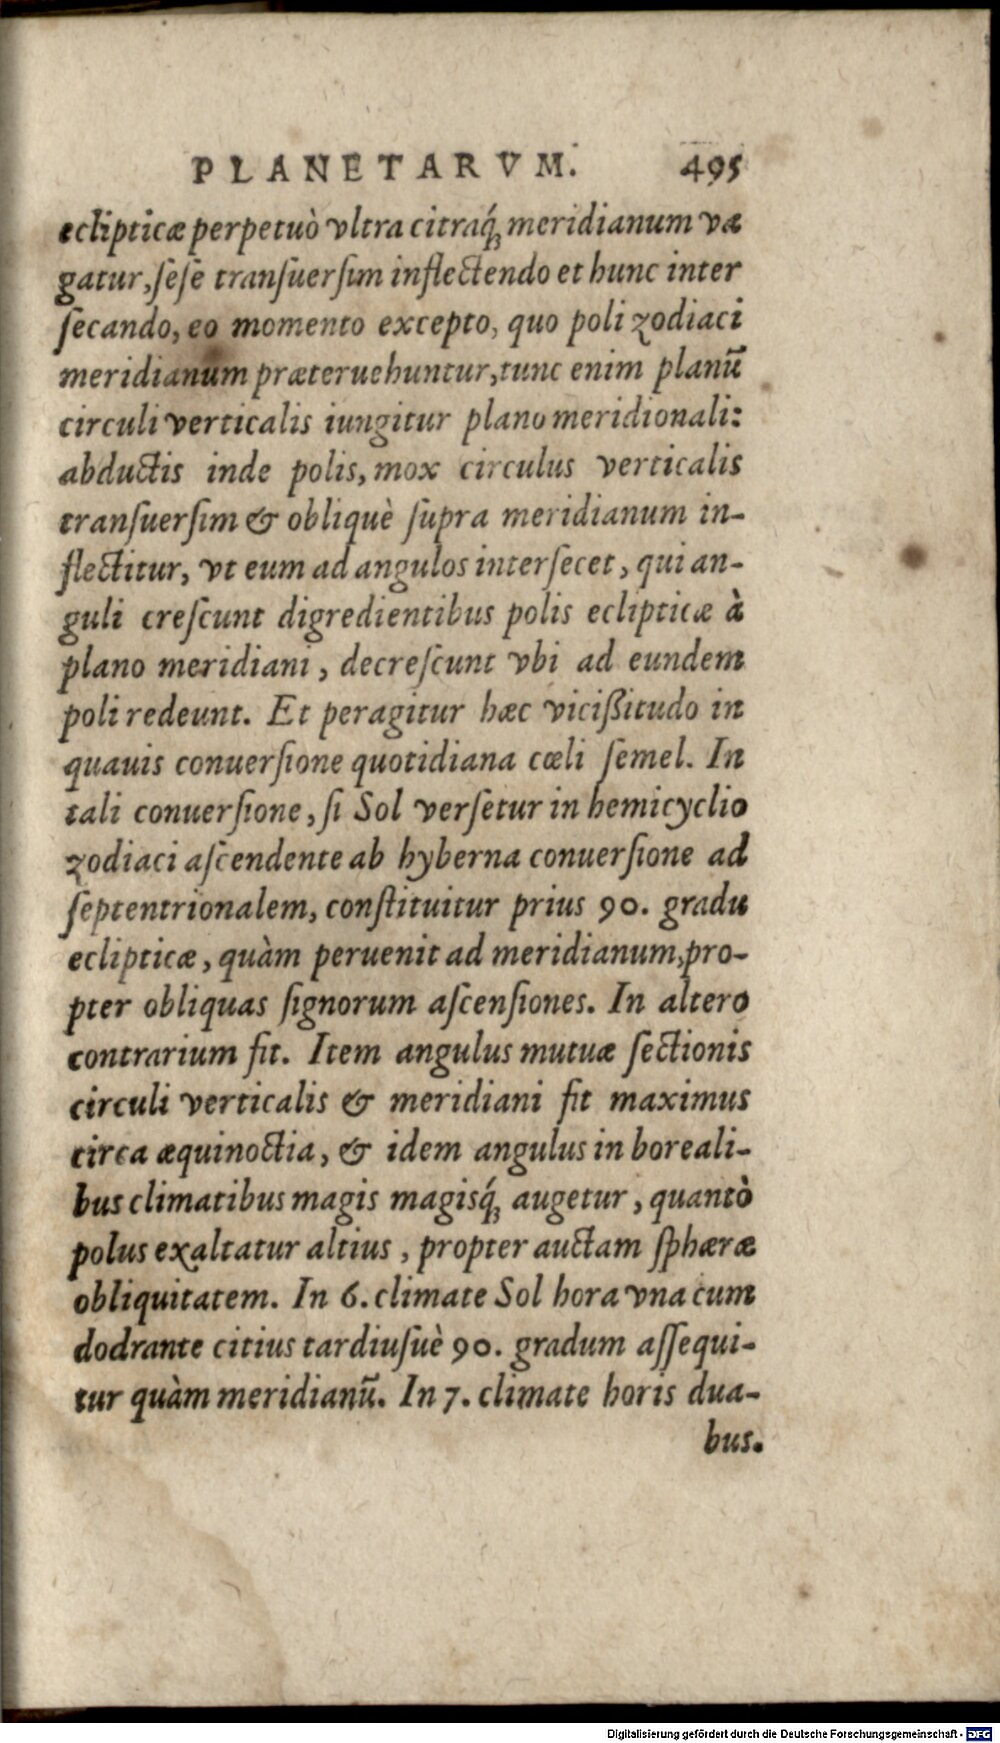 PLANETARVM. 495
eclipticæ perpetuò vltra citraq́; meridianum væ
gatur, ſeſe tranſuerſim inflectendo et hunc inter
ſecando, eo momento excepto, quo poli zodiaci
meridianum præteruehuntur, tunc enim planū
circuli verticalis iungitur plano meridionali:
abductis inde polis, mox circulus verticalis
tranſuerſim & obliquè ſupra meridianum in-
flectitur, vt eum ad angulos interſecet, qui an-
guli creſcunt digredientibus polis eclipticæ à
plano meridiani, decreſcunt vbi ad eundem
poli redeunt. Et peragitur hæc viciſsitudo in
quauis conuerſione quotidiana cœli ſemel. In
tali conuerſione, ſi Sol verſetur in hemicyclio
zodiaci aſcendente ab hyberna conuerſione ad
ſeptentrionalem, conſtituitur prius 90. gradu
eclipticæ, quàm peruenit ad meridianum, pro-
pter obliquas ſignorum aſcenſiones. In altero
contrarium fit. Item angulus mutuæ ſectionis
circuli verticalis & meridiani fit maximus
circa æquinoctia, & idem angulus in boreali-
bus climatibus magis magisq́; augetur, quantò
polus exaltatur altius, propter auctam ſphæræ
obliquitatem. In 6. climate Sol hora vna cum
dodrante citius tardiuſuè 90. gradum aſſequi-
tur quàm meridianū. In 7. climate horis dua-
bus.
Digitalisierung gefördert durch die Deutsche Forschungsgemeinschaft - DFG